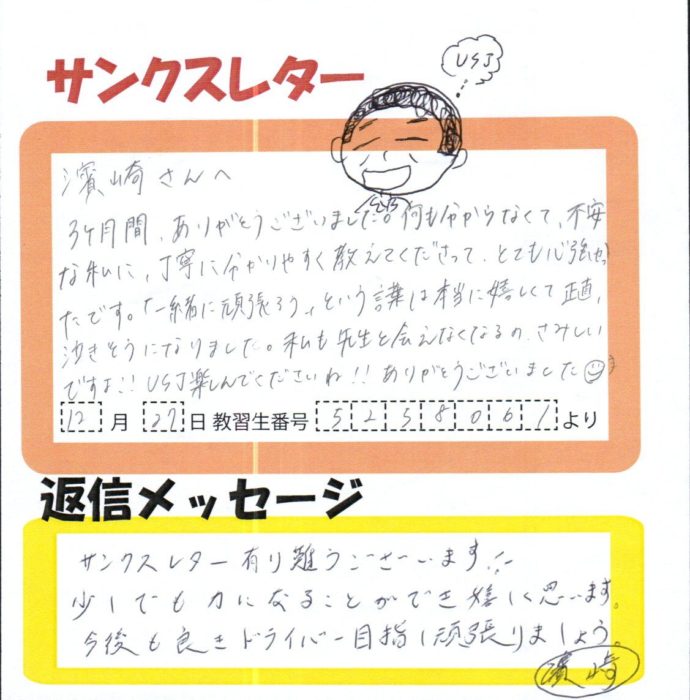 USJ
サンクスレター
濱崎さんへ
3ヶ月間、ありがとうございました。何も分からなくて、不安
な私に、丁寧に分かりやすく教えてくださって、とても心強かっ
たです。「一緒に頑張ろう」という言葉は本当に嬉しくて正直、
泣きそうになりました。私も先生と会えなくなるの、さみしい
ですよ!! USJ楽しんでくださいね!! ありがとうございました
12月27日 教習生番号 52538061 より
返信メッセージ
サンクスレター有り難うございます!!
少しでも力になることができ嬉しく思います。
今後も良きドライバー目指し頑張りましょう。
濱崎